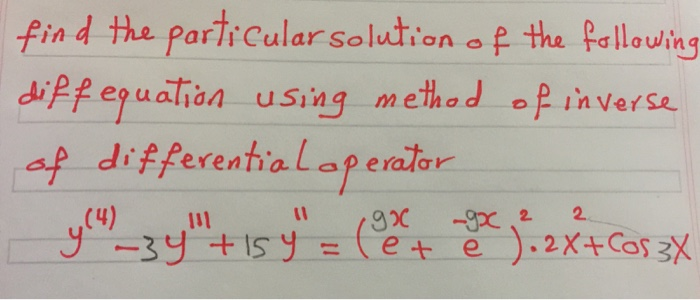 find the particular solution of the following
diff equation using method of inverse
of differential operator
y⁽⁴⁾ -3y''' + 15 y'' = (e⁹ˣ + e⁻⁹ˣ)² . 2x² + Cos 3x